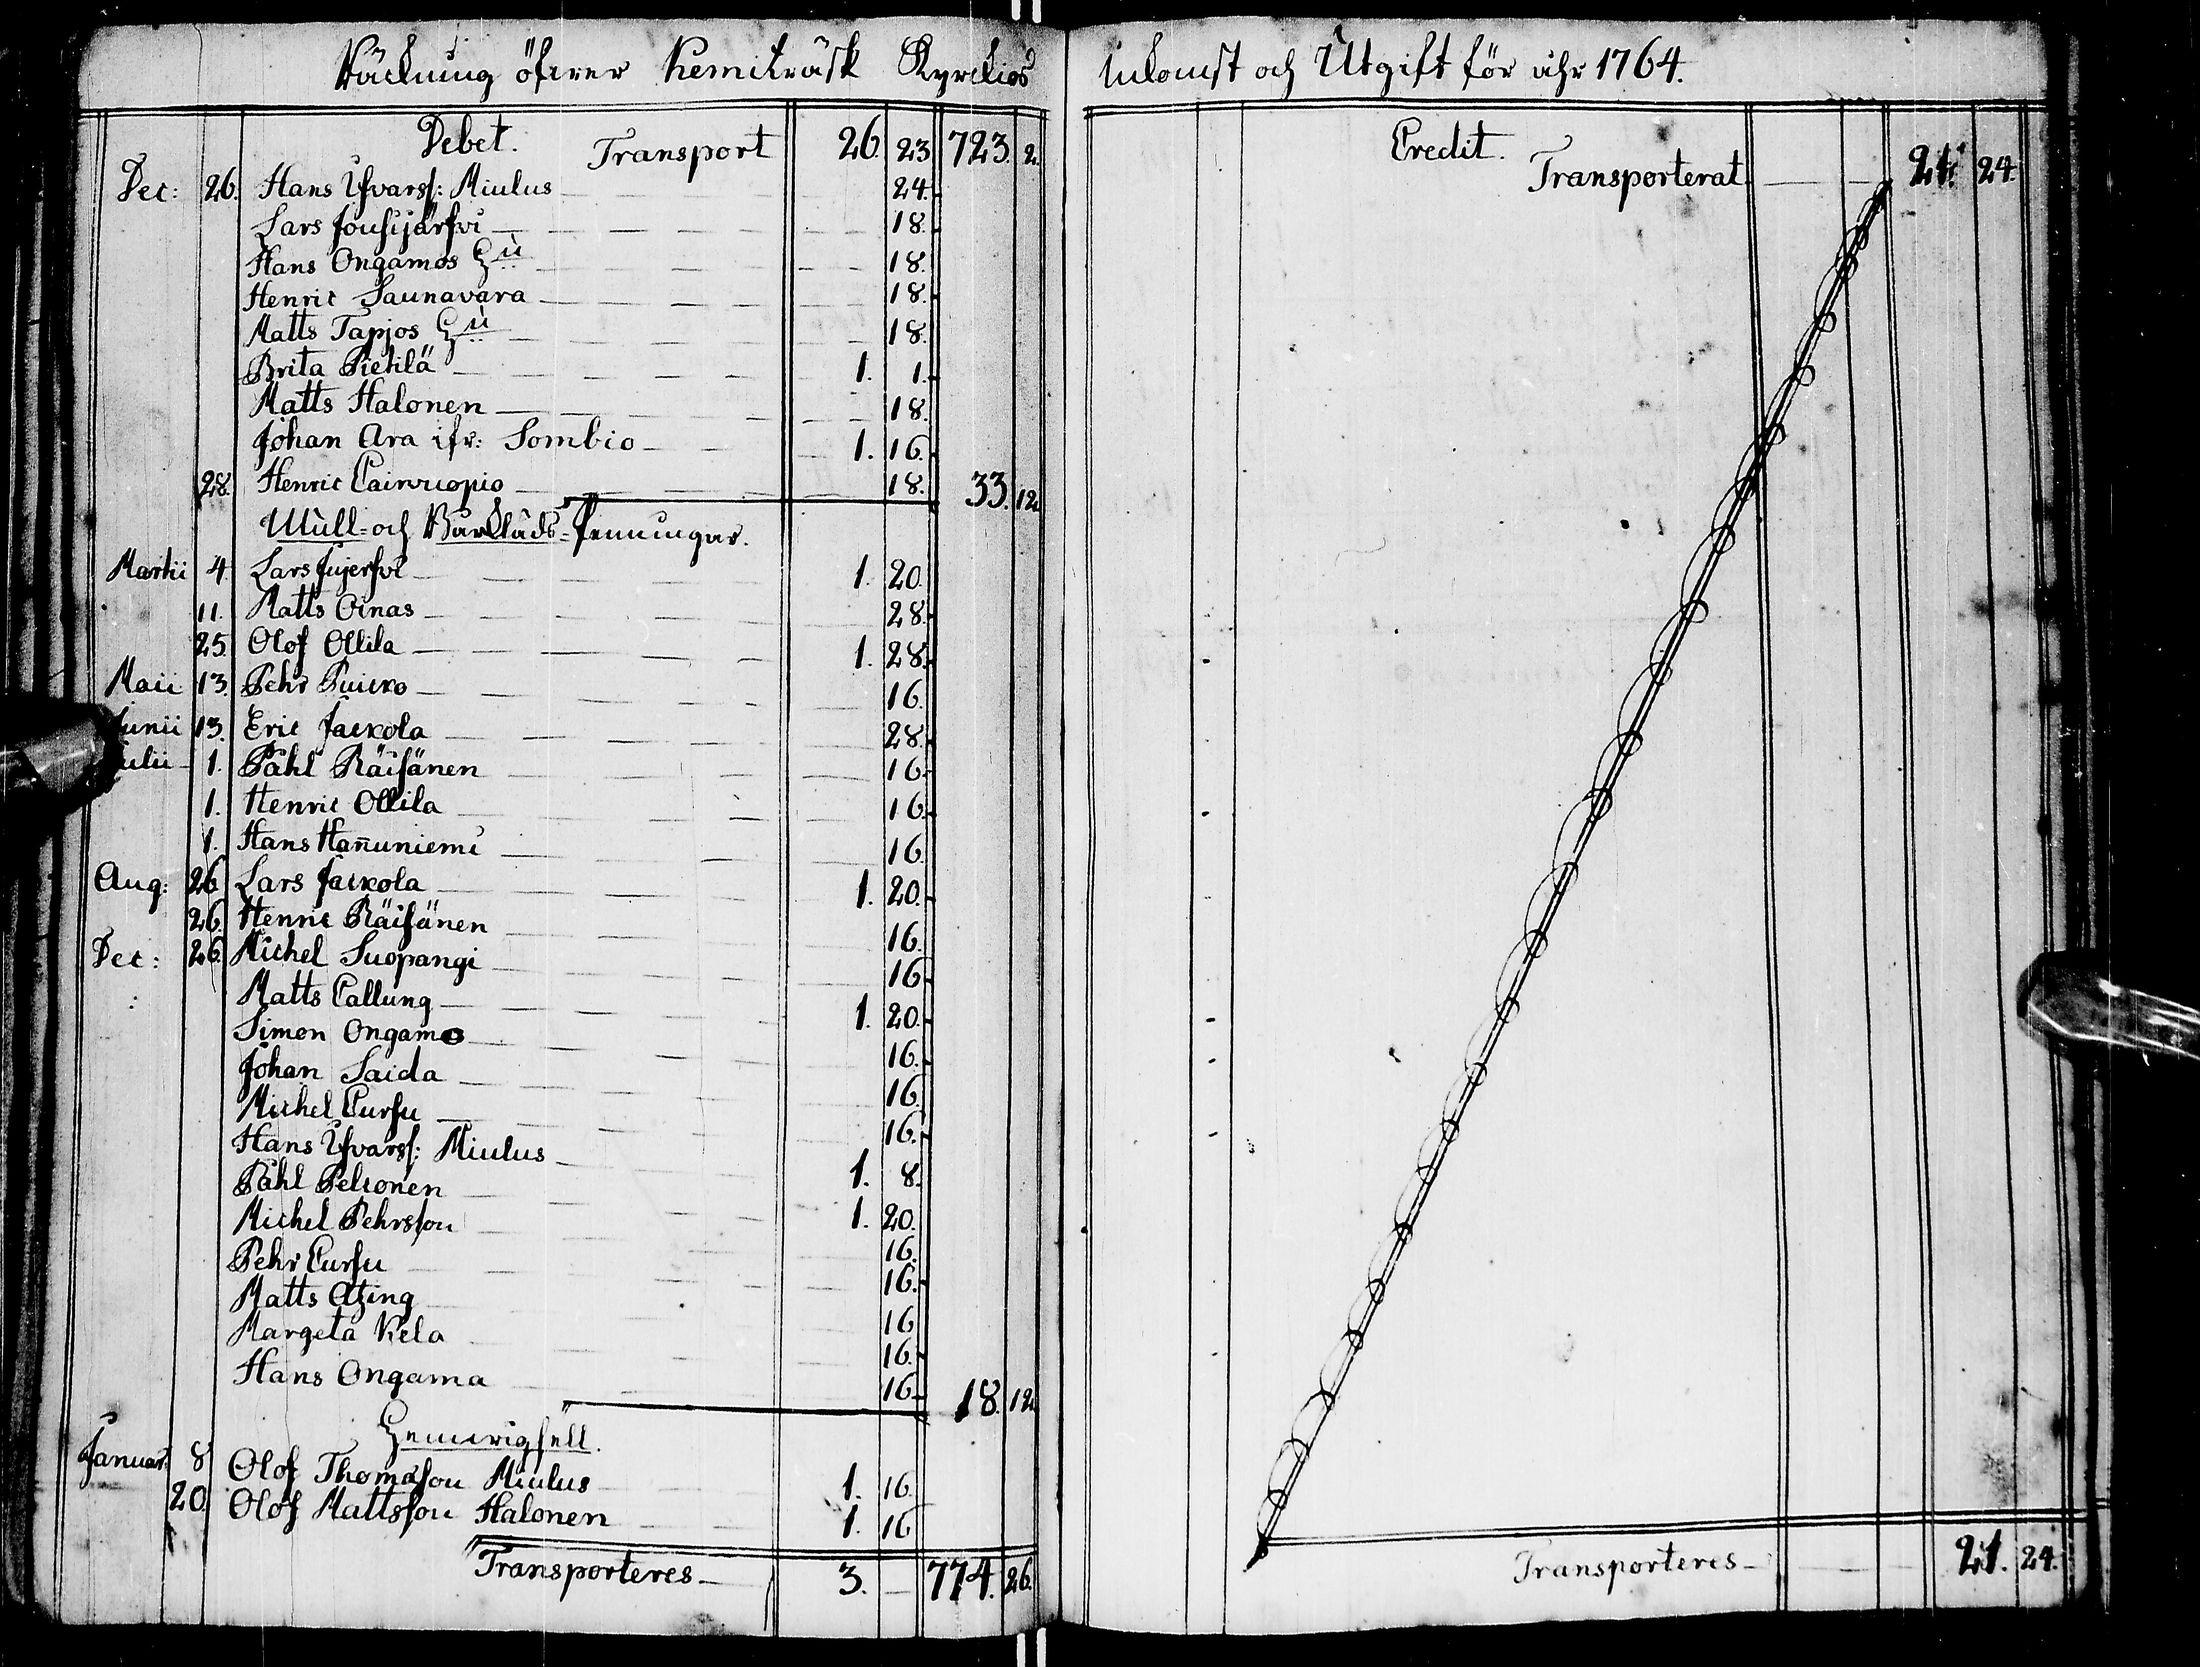 Räckning öfwer Kemiträsk Kyrckios Inkomst och Utgift för åhr 1764.
Debet. Transport 26. 23 723. 2.
Dec: 26. Hans Ifvarss: Miulus 24.
Lars Jousijärfvi 18.
Hans Ongamos Hu 18.
Henric Saunavara 18.
Matts Tapjos Hu 18.
Brita Pietilä 1. 1.
Matts Halonen 18.
Johan Ara ifr: Sombio 1. 16.
28. Henric Cairvuopio 18. 33. 12.
Mull- och Barkläds-Penningar.
Martii 4. Lars Jujerfvi 1. 20.
11. Matts Oinas 28.
25. Olof Ollila 1. 28.
Maii 13. Pehr Puicko 16.
Junii 13. Eric Jackola 28.
Julii 1. Påhl Räisänen 16.
1. Henric Ollila 16.
1. Hans Han̄uniemi 16.
Aug: 26 Lars Jackola 1. 20.
26. Henric Räisänen 16.
Dec: 26. Michel Suopangi 16.
Matts Callung 1. 20.
Simon Ongamo 16.
Johan Saida 16.
Michel Cursu 16.
Hans Ifvarss: Miulus 1. 8.
Påhl Peltonen 1. 20.
Michel Pehrsson 16.
Pehr Cursu 16.
Matts Atzing 16
Margeta Kela 16.
Hans Ongama 16. 18. 12.
Januar: 8 Olof Thomasson Miulus 1. 16.
20. Olof Mattsson Halonen 1. 16
Transporteres 3. 774. 26.
Credit.
Transporterat 21. 24.
Transporteres 21. 24.